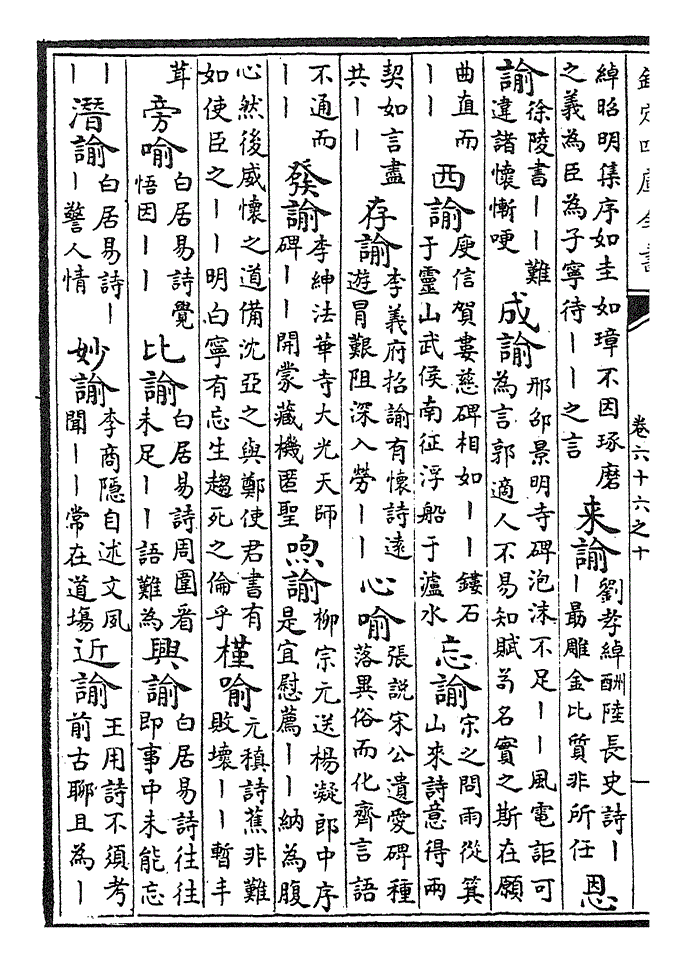 欽定四庫全書
卷六十六之十
綽昭明集序如圭如璋不因琢磨之義為臣為子寧待——之言来諭劉孝綽酬陸長史詩——最雕金比質非所任恩
諭徐陵書——難違諸懷慚哽成諭邢邵景明寺碑泡沫不足——風電詎可為言郭適人不易知賦茍名實之斯在願
曲直而——西諭庾信賀婁慈碑相如——鏤石于靈山武侯南征浮船于瀘水忘諭宋之問雨從箕山來詩意得兩
契如言盡共——存諭李義府招諭有懷詩遠遊冒艱阻深入勞——心喻張說宋公遺愛碑種落異俗而化齊言語
不通而——發諭李紳法華寺大光天師碑——開蒙藏機匿聖喣諭柳宗元送楊凝郎中序是宜慰薦——納為腹
心然後威懷之道備沈亞之與鄭使君書有如使臣之——明白寧有忘生趨死之倫乎槿喻元稹詩蕉非難敗壞——暫丰
茸旁喻白居易詩覺悟因——比諭白居易詩周圍看未足——語難為興諭白居易詩往往即事中未能忘
——潛諭白居易詩——警人情妙諭李商隱自述文夙聞——常在道場近諭王用詩不須考前古聊且為—